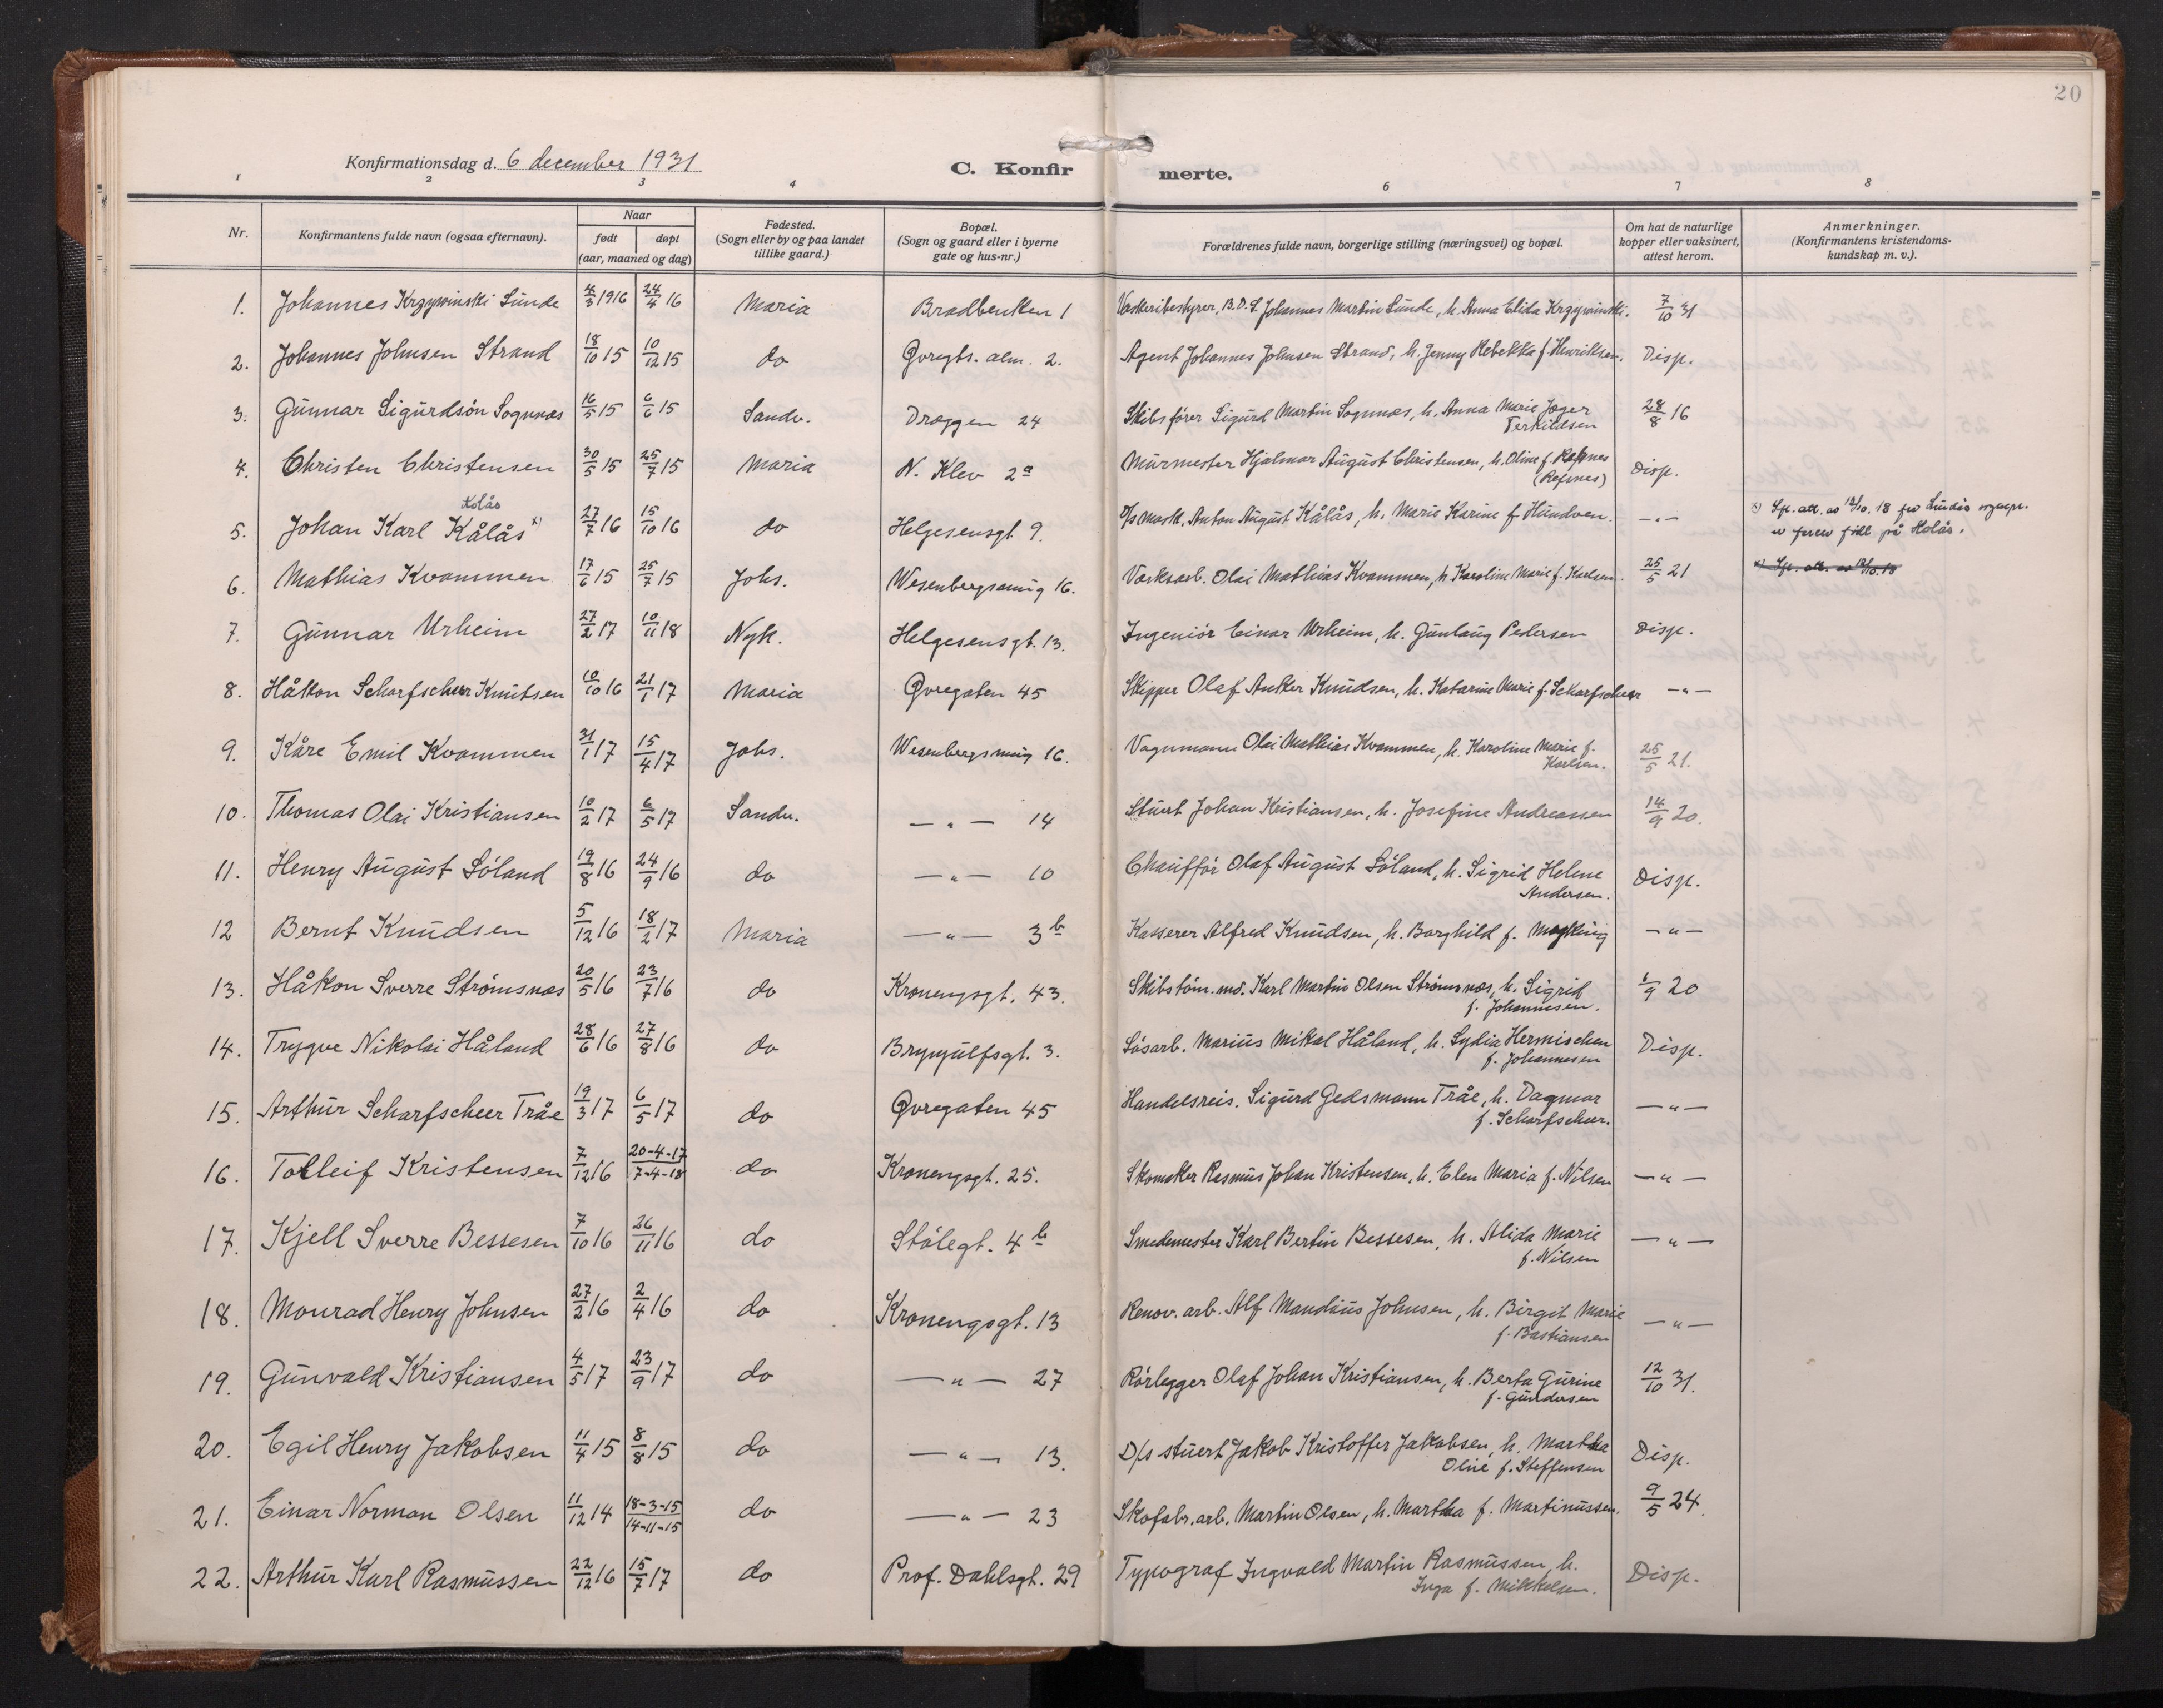 20
Konfirmationsdag d. 6 december 1931
C. Konfirmerte.
1 2 3 4 6 7 8
Nr. Konfirmantens fulde navn (ogsaa efternavn). Naar født døpt (aar, maaned og dag) Fødested. (Sogn eller by og paa landet tillike gaard.) Bopæl. (Sogn og gaard eller i byerne gate og hus-nr.) Forældrenes fulde navn, borgerlige stilling (næringsvei) og bopæl. Om hat de naturlige kopper eller vaksinert, attest herom. Anmerkninger. (Konfirmantens kristendoms-kundskap m. v.).
1. Johannes Krzywinski Sunde 4/3 1916 24/4 16 Maria Bradbenken 1 Væskeribestyrer, B.D.S. Johannes Martin Sunde, h. Anna Elida Krzywinski. 7/10 31
2. Johannes Johnsen Strand 18/10 15 10/12 15 do Øvregts. alm. 2. Agent Johannes Johnsen Strand, h. Jenny Rebekka f. Henriksen. Disp.
3. Gunnar Sigurdsön Sognnæs 16/5 15 6/6 15 Sandv. Dræggen 24 Skibsförer Sigurd Martin Sognnæs, h. Anna Marie Jæger
Terkildsen 28/8 16
4. Christen Christensen 30/5 15 25/7 15 Maria N. Klev 2a Murmester Hjalmar August Christensen, h. Oline f. Refsnes
(Refsnes) Disp.
Kolås
5. Johan Karl Kålås x) 27/7 16 15/10 16 do Helgesensgt. 9. D/s mask. Anton August Kålås, h. Marie Karine f. Hundven. — " — x) Ifl. att. av 12/10. 18 fra Lindås sognepr.
er faren född på Kolås.
6. Mathias Kvammen 17/6 15 25/7 15 Johs. Wesenbergsmug 16. Værksarb. Olai Mathias Kvammen, h. Karoline Marie f. Karlsen. 25/5 21 x) Ifl. att. av 12/10. 18
7. Gunnar Urheim 27/2 17 10/11 18 Nyk. Helgesensgt. 13. Ingeniör Einar Urheim, h. Gunlaug Pedersen Disp.
8. Håkon Scharfscheer Knutsen 10/10 16 21/1 17 Maria Øvregaten 45 Skipper Olaf Anker Knudsen, h. Katarine Marie f. Scharfscheer — " —
9. Kåre Emil Kvammen 31/1 17 15/4 17 Johs. Wesenbergsmug 16. Vognmann Olai Mathias Kvammen, h. Karoline Marie f.
Karlsen. 25/5 21.
10. Thomas Olai Kristiansen 10/2 17 6/5 17 Sandv. — " — 14 Stuert Johan Kristiansen, h. Josefine Andreassen 14/9 20.
11. Henry August Söland 19/8 16 24/9 16 do — " — 10 Chaufför Olaf August Söland, h. Sigrid Helene
Andersen. Disp.
12 Bernt Knudsen 5/12 16 18/2 17 Maria — " — 3b Kasserer Alfred Knudsen, h. Borghild f. Myking — " —
13. Håkon Sverre Strömsnæs 20/5 16 23/7 16 do Kronengsgt. 43. Skibstöm.md. Karl Martin Olsen Strömsnæs, h. Sigrid
f. Johannesen. 1/9 20
14. Trygve Nikolai Håland 28/6 16 27/8 16 do Brynjulfsgt. 3. Løsarb. Marius Mikal Håland, h. Lydia Hermischen
f. Johannesen Disp.
15. Arthur Scharfscheer Tråe 19/3 17 6/5 17 do Øvregaten 45 Handelsreis. Sigurd Gedsmann Tråe, h. Dagmar
f. Scharfscheer. — " —
16. Tolleif Kristensen 7/12 16 20-4-17/7-4-18 do Kronengsgt. 25. Skomaker Rasmus Johan Kristensen, h. Elen Maria f. Nilsen — " —
17. Kjell Sverre Bessesen 7/10 16 26/11 16 do Stölegt. 4b Smedemester Karl Bertin Bessesen, h. Alida Marie
f. Nilsen — " —
18. Monrad Henry Johnsen 27/2 16 2/4 16 do Kronengsgt. 13 Renov. arb. Alf Mandius Johnsen, h. Birgit Marie
f. Bastiansen — " —
19. Gunvald Kristiansen 4/5 17 23/9 17 do — " — 27 Rörlegger Olaf Johan Kristiansen, h. Berta Gurine
f. Gundersen 12/10 31.
20. Egil Henry Jakobsen 11/4 15 8/8 15 do — " — 13. D/s stuert Jakob Kristoffer Jakobsen, h. Martha
Oline f. Steffensen Disp.
21. Einar Norman Olsen 11/12 14 18-3-15/14-11-15 do — " — 23 Skofabr.arb. Martin Olsen, h. Martha f. Martinussen. 9/5 24.
22. Arthur Karl Rasmussen 22/12 16 15/7 17 do Prof. Dahlsgt. 29 Typograf Ingvald Martin Rasmussen, h.
Inga f. Mikkelsen. Disp.